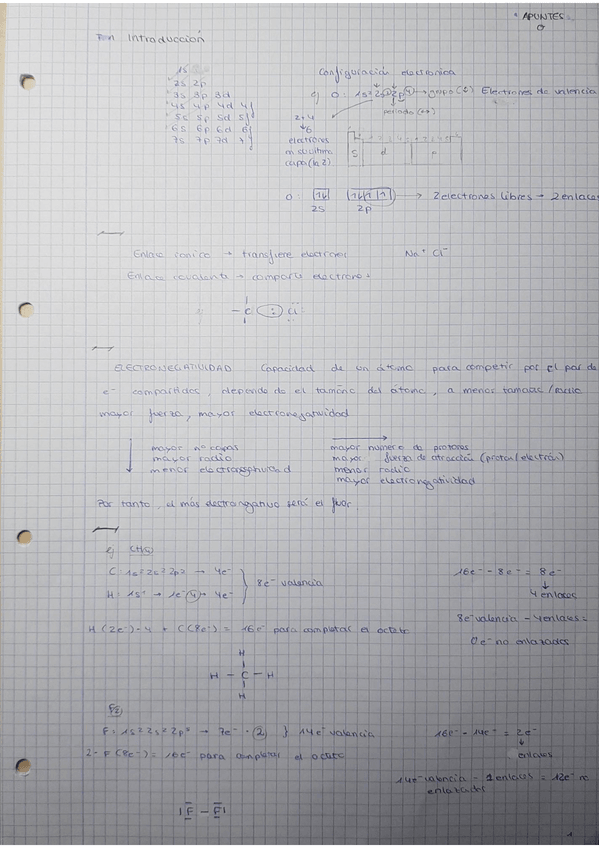 APUNTES
Introducción
1S
2S 2p
3S 3p 3d
4S 4p 4d 4f
5S 5p 5d 5f
6S 6p 6d 6f
7S 7p 7d 7f
Configuración electronica
ej O: 1s² 2s² 2p⁴ → grupo Electrones de valencia
periodo
2+4
6
electrones
en su ultima
capa (la 2)
S d p
O: 2s 2p → 2 electrones libres → 2 enlaces
Enlace ionico → transfiere electrones Na⁺ Cl⁻
Enlace covalente → comparte electrones
- C : Cl
ELECTRONEGATIVIDAD Capacidad de un átomo para competir por el par de
e⁻ compartidos, depende de el tamaño del átomo, a menor tamaño / radio
mayor fuerza, mayor electronegatividad
mayor nº capas
mayor radio
menor electronegatividad
mayor número de protones
mayor fuerza de atracción (proton/electrón)
menor radio
mayor electronegatividad
Por tanto, el más electronegativo será el fluor.
ej CH4
C: 1s² 2s² 2p² → 4e⁻
H: 1s¹ → 1e⁻ · 4 → 4e⁻
8e⁻ valencia
16e⁻ - 8e⁻ = 8e⁻
4 enlaces
H (2e⁻) · 4 + C (8e⁻) = 16e⁻ para completar el octeto
8e⁻ valencia - 4 enlaces =
0e⁻ no enlazados
H
H - C - H
H
F2
F: 1s² 2s² 2p⁵ → 7e⁻ · 2 } 14e⁻ valencia
16e⁻ - 14e⁻ = 2e⁻
enlaces
2 · F (8e⁻) = 16e⁻ para completar el octeto
14e⁻ valencia - 2 enlaces = 12e⁻ no
enlazados
|F - F|
1